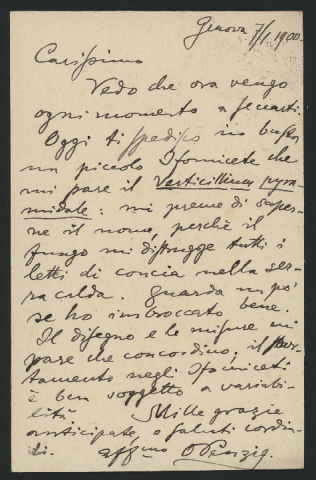 Genova 7/1 1900.
Carissimo
Vedo che ora vengo
ogni momento a seccarti.
Oggi ti spedisco in busta
un piccolo Ifomicete che
mi pare il Verticillium pyra-
midale: mi preme di saper-
ne il nome, perchè il
fungo mi distrugge tutti i
letti di concia nella ser-
ra calda. Guarda un po'
se ho imbroccato bene.
Il disegno e le misure mi
pare che concordino; il
tamento negli Ifomiceti
è ben soggetto a variabi-
lità. Mille grazie
anticipate, e saluti cordia-
li. affmo OPenzig.